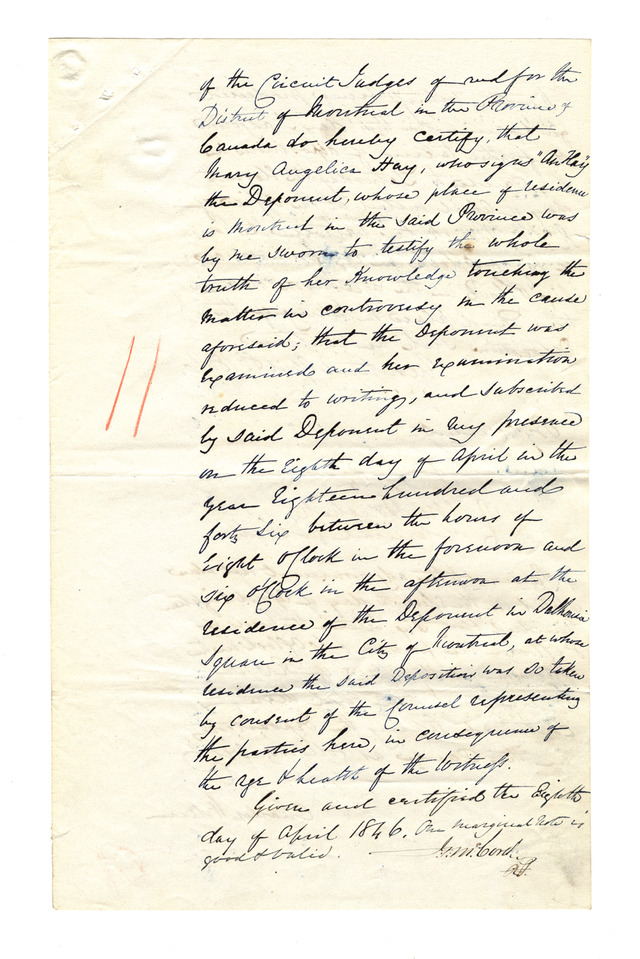 of the Circuit Judges of and for the
District of Montreal in the Province of
Canada do hereby certify, that
Mary Angelica Hay, who signs "An Hay",
the Deponent, whose place of residence
is Montreal in the said Province was
by me sworn to testify the whole
truth of her Knowledge touching the
matter in controversy in the cause
aforesaid; that the Deponent was
examined and her examination
reduced to writing, and subscribed
by said Deponent in my presence
on the Eighth day of April in the
year Eighteen hundred and
forty six between the hours of
Eight O'Clock in the forenoon and
six O'Clock in the afternoon at the
residence of the Deponent in Dalhousie
Square in the City of Montreal, at whose
residence the said Deposition was so taken
by consent of the Counsel representing
the parties here, in consequence of
the age & health of the Witness.
Given and certified the Eighth
day of April 1846. One marginal note is
good & valid. McCord